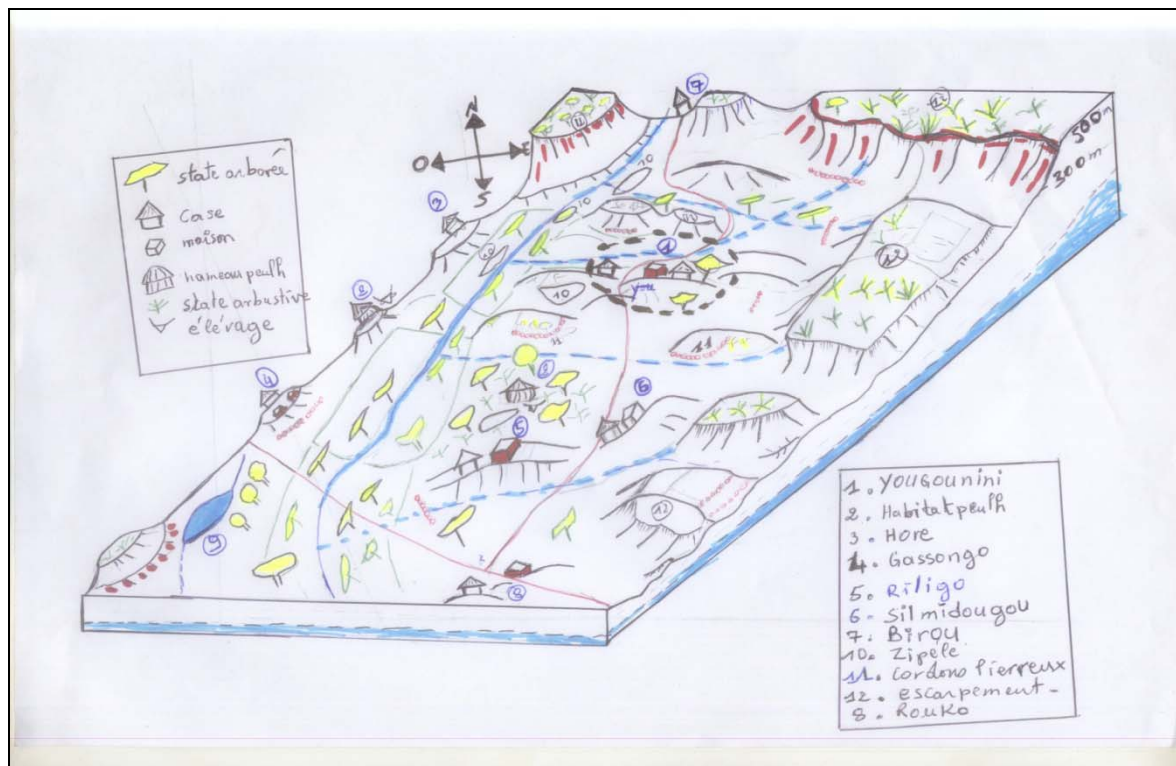 N
O
E
S
state arborée
Case
maison
hameau peulh
state arbustive
élévage
500m
300m
7
11
12
10
3
10
10
1
12
you
10
8
11
11
6
4
5
9
12
8
1. YOUGOUNINI
2. Habitat peulh
3. Hore
4. Gassongo
5. Riligo
6. Silmidougou
7. Birou
10. Zipélé
11. Cordons Pierreux
12. escarpement-
8. Rouko